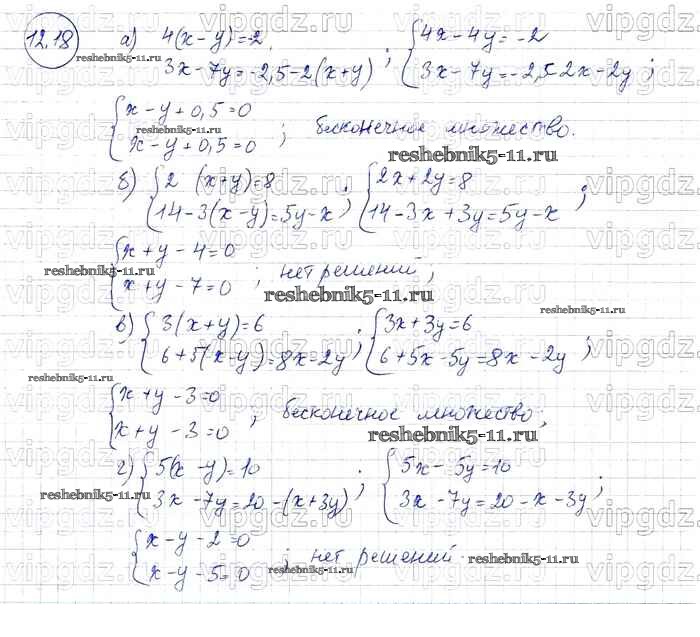 12.18 а) 4(x-y)=-2,        { 4x-4y=-2
3x-7y=-2,5-2(x+y) ; { 3x-7y=-2,5-2x-2y ;
{ x-y+0,5=0
x-y+0,5=0 ; бесконечное множество.
б) { 2 (x+y)=8        { 2x+2y=8
14-3(x-y)=5y-x ; { 14-3x+3y=5y-x ;
{ x+y-4=0
x+y-7=0 ; нет решений;
в) { 3(x+y)=6        { 3x+3y=6
6+5(x-y)=8x-2y ; { 6+5x-5y=8x-2y ;
{ x+y-3=0
x+y-3=0 ; бесконечное множество;
г) { 5(x-y)=10        { 5x-5y=10
3x-7y=20-(x+3y) ; { 3x-7y=20-x-3y ;
{ x-y-2=0
x-y-5=0 ; нет решений.
vipgdz.ru
reshebnik5-11.ru